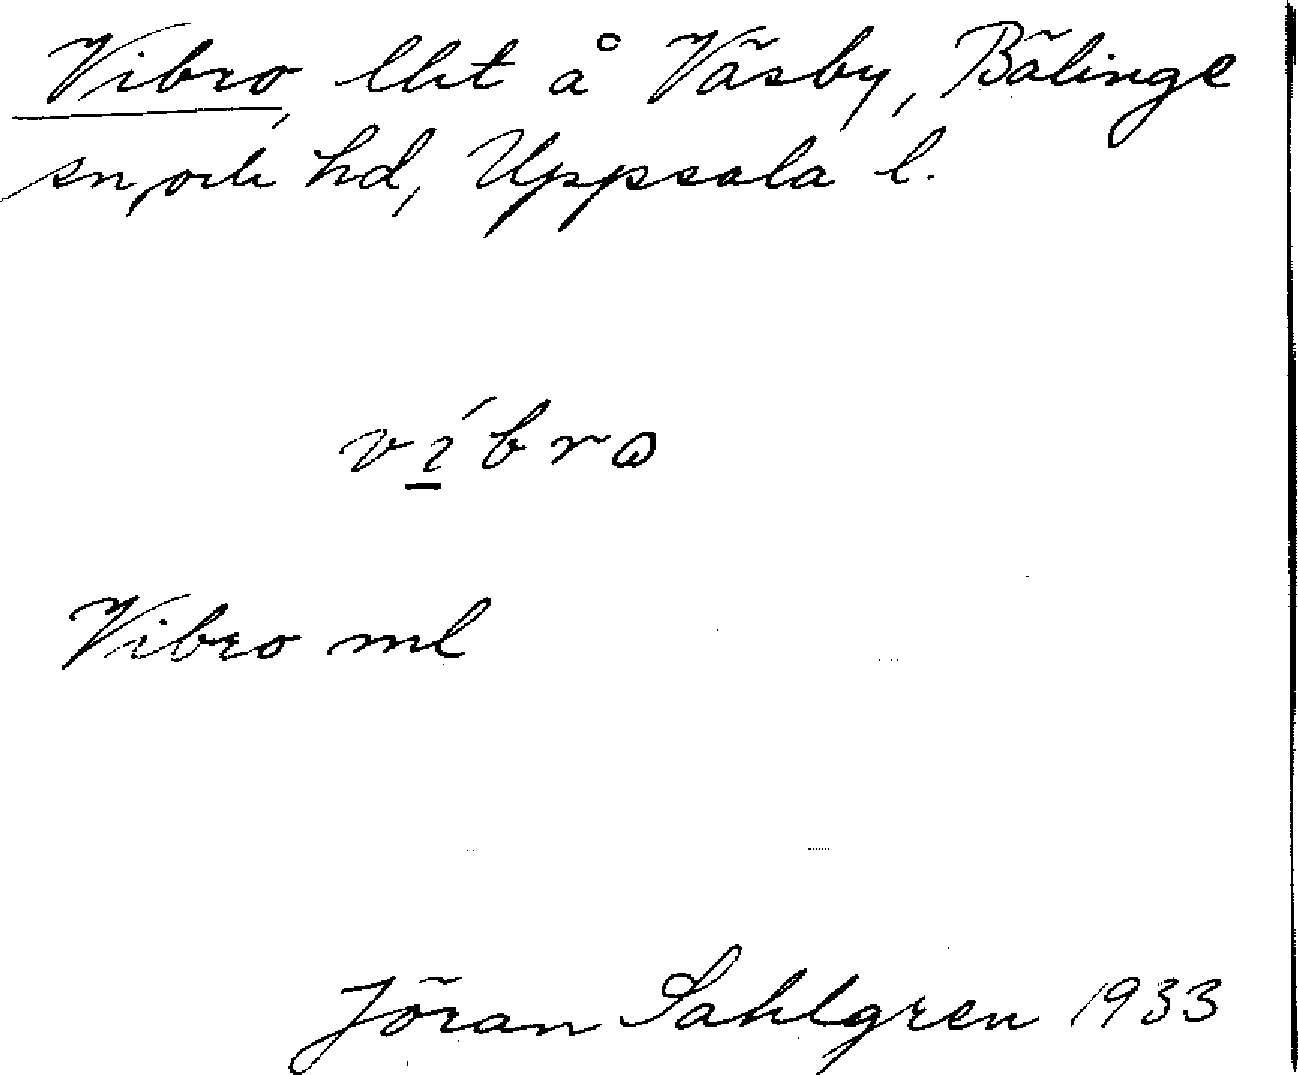 Vibro, lht å Väsby, Bälinge
sn och hd, Uppsala l.
ví̱brω
Vibro ml
Jöran Sahlgren 1933